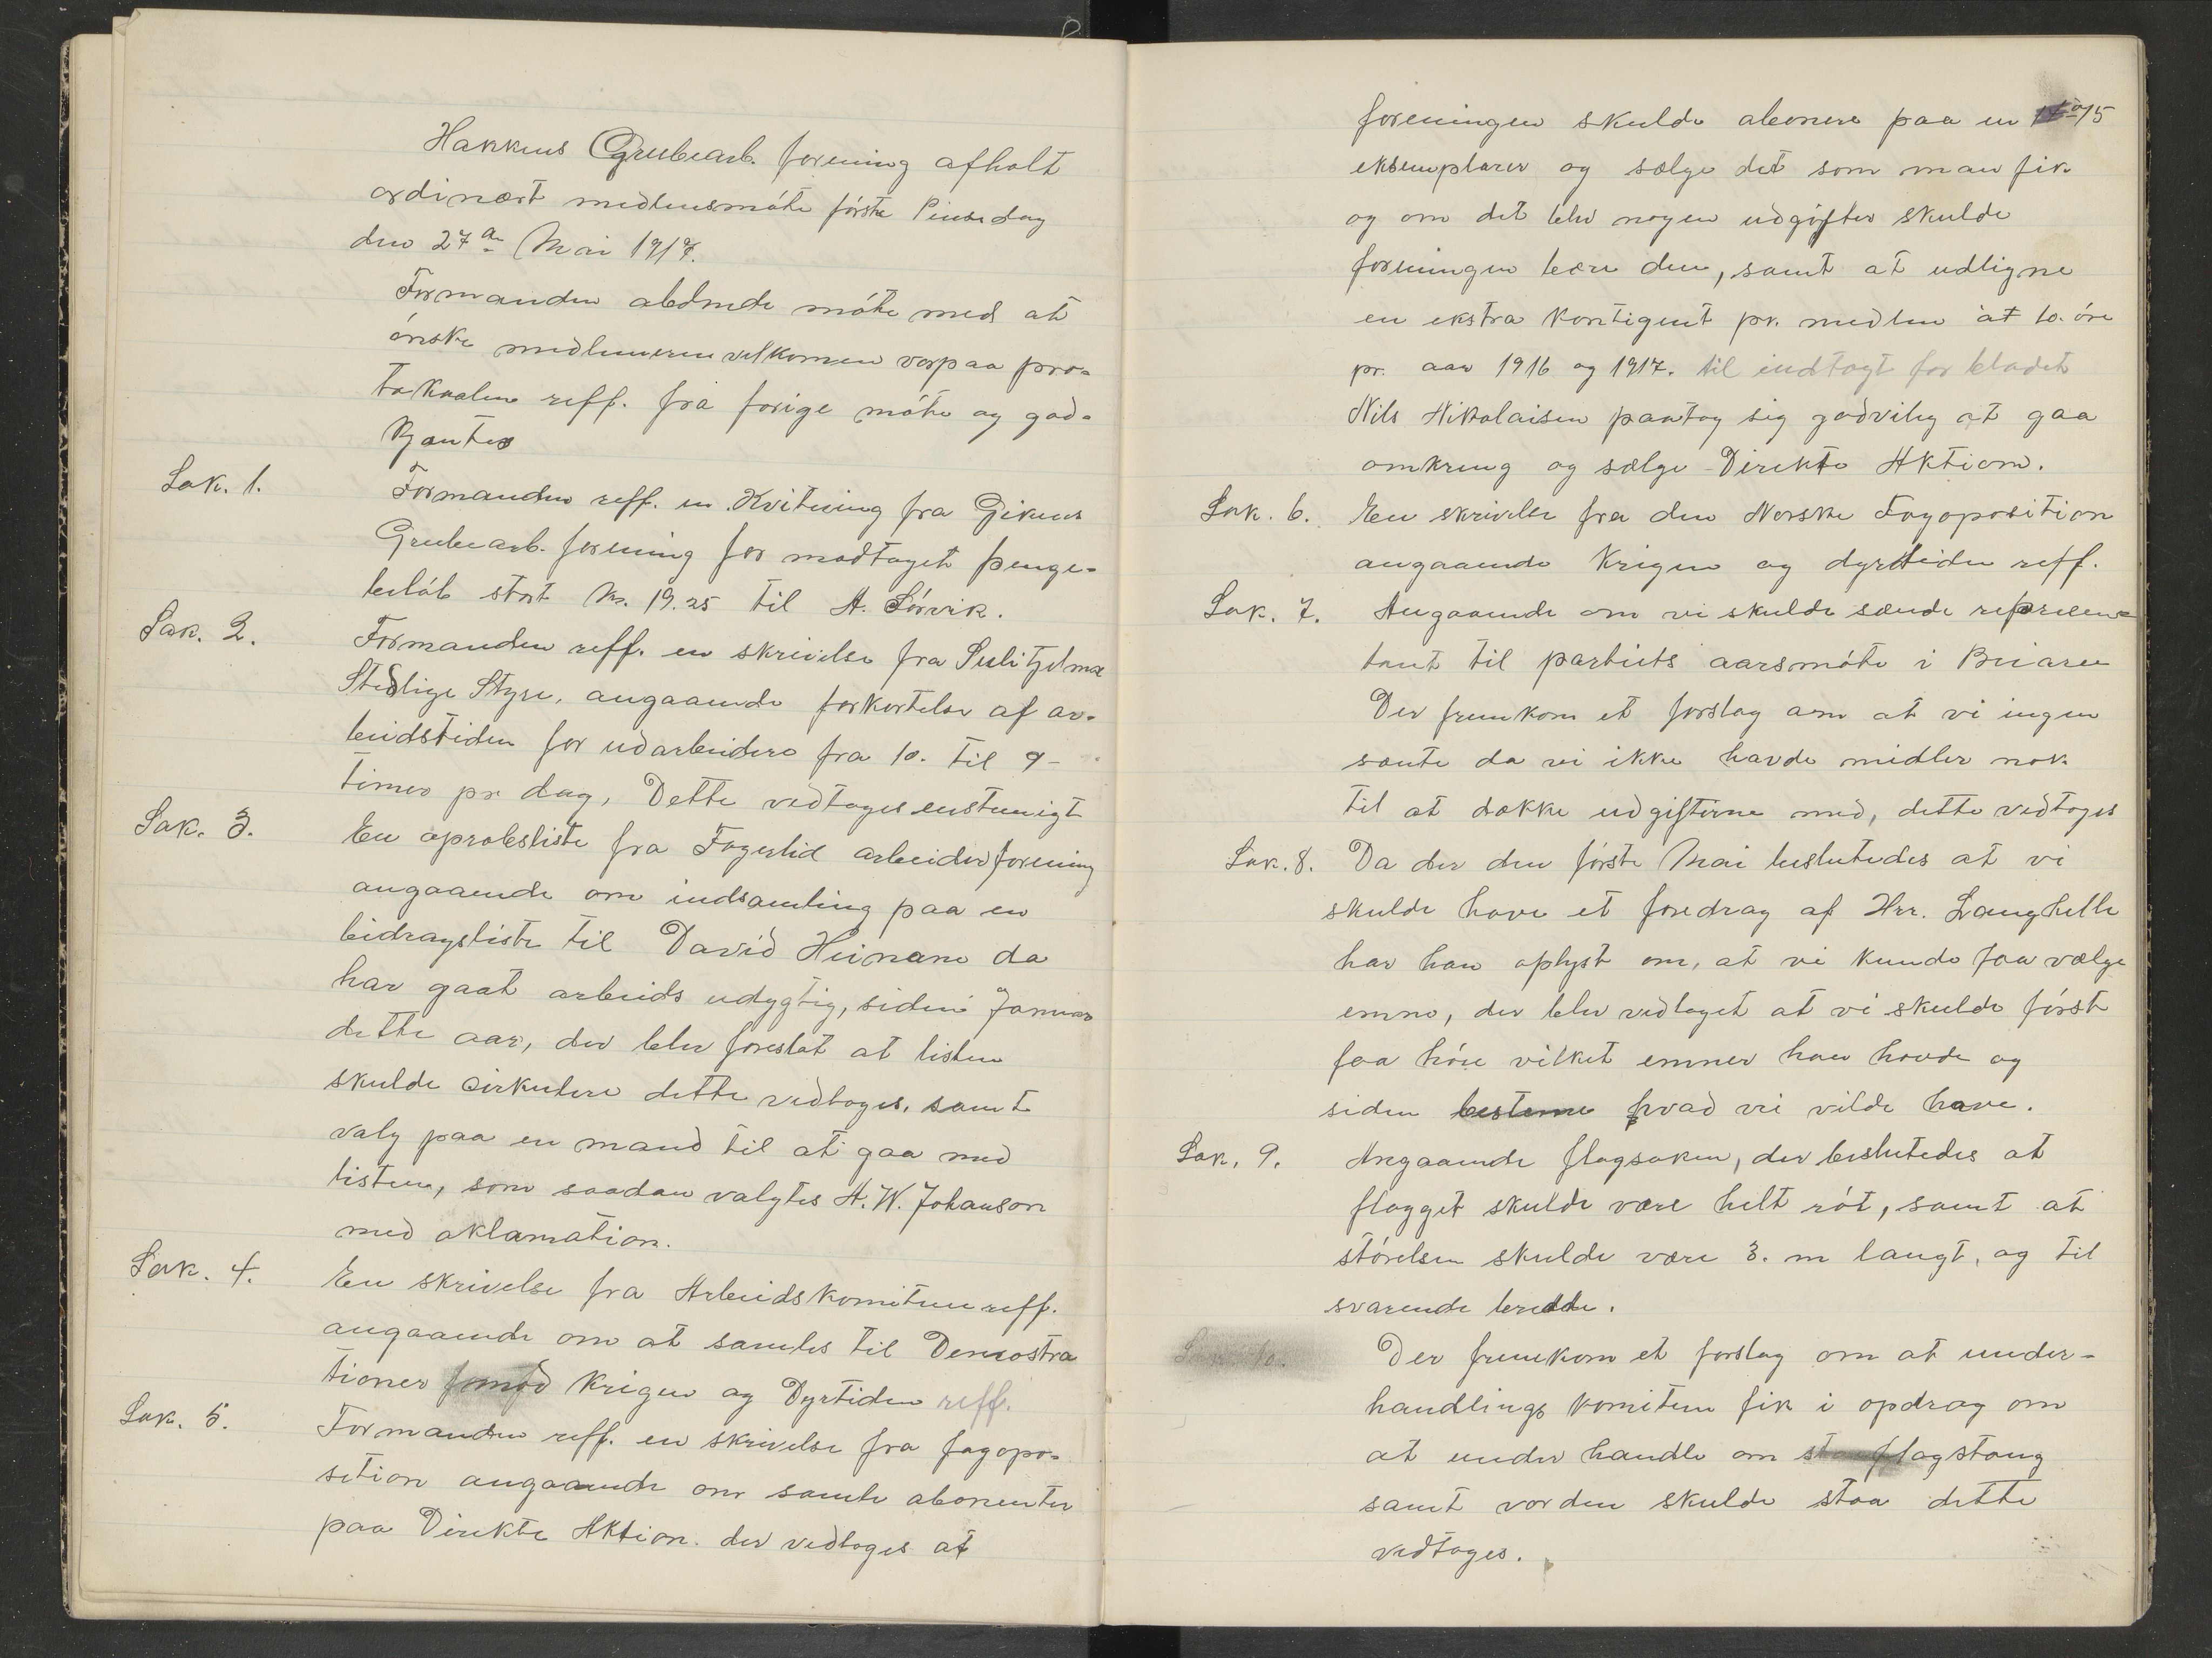 Hankens Grubearb. forening afholt
ordinært medlemsmöte förste Pinsedag
den 27de Mai 1917.
Formanden abdnede möte med at
önske medlemerne velkomen vorpaa pro-
tokoolen reff. fra forige möte og god-
kjantes
Sak. 1. Formanden reff. en Kvitering fra Gikens
Grubearb. forening for modtaget penge-
belöb stort Kr. 19.25 til A. Sörvik.
Sak. 2. Formanden reff. en skrivelse fra Sulitjelma
Stedlige Styre, angaaende forkortelse af ar-
beidstiden for udarbeidere fra 10. til 9-
timer pr dag, Dette vedtoges enstemigt
Sak. 3. En opropsliste fra Fagerlid arbeiderforening
angaaende om indsamling paa en
bidragsliste til David Heinane da
har gaat arbeids udygtig, siden i Januar
dette aar, der blev foreslat at listen
skulde cirkulere dette vedtoges, samt
valg paa en mand til at gaa med
listen, som saadan valgtes A. W. Johanson
med aklamation.
Sak. 4. En skrivelse fra Arbeidskomiteen reff.
angaaende om at samles til Demostra
tioner mod Krigen og Dyrtiden reff.
Sak. 5. Formanden reff. en skrivelse fra fagopo-
sition angaaende om samle abonenter
paa Direkte Aktion. der vedtoges at
foreningen skulde abonere paa en 10 à 15
eksemplarer og sælge det som man fik
og om det blev nogen udgifter skulde
foreningen bære den, samt at udligne
en ekstra kontigent pr. medlem at 10. öre
pr. aar 1916 og 1917. til indtægt for bladet
Nils Nikolaisen paatog sig godvilig at gaa
omkring og sælge Direkte Aktion.
Sak. 6. En skrivelse fra den Norske Fagoposition
angaaende Krigen og dyrtiden reff.
Sak. 7. Angaaende om vi skulde sænde represen-
tant til partiets aarsmöte i
Der fremkom et forslag om at vi ingen
sente da vi ikke havde midler nok
til at dække udgifterne med, dette vedtoges
Sak. 8. Da der den förste Mai beslutedes at vi
skulde have et foredrag af Hrr. Langhelle
har han oplyst om, at vi kunde faa vælge
emne, der blev vedtaget at vi skulde först
faa höre vilket emner han havde og
siden besteme hvad vi vilde have.
Sak. 9. Angaaende flagsaken, der beslutedes at
flagget skulde være helt röt, samt at
störelsen skulde være 3. m langt, og til
svarende bredde.
Sak 10. Der fremkom et forslag om at under-
handlings komiteen fik i opdrag om
at under handle om flagstang
samt vor den skulde staa dette
vedtoges.